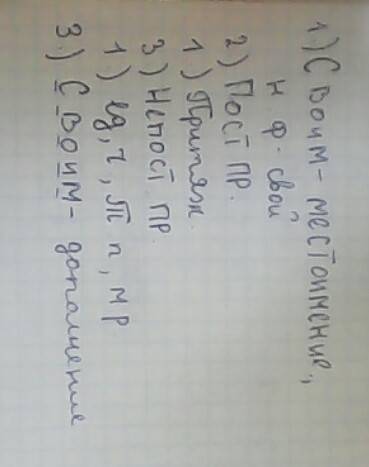 1) Своим - местоимение,
н.ф. свой
2) Пост пр.
1) Притяж.
3) Непост. пр.
1) ед, ч, Т п, м р
3.) Своим - дополнение